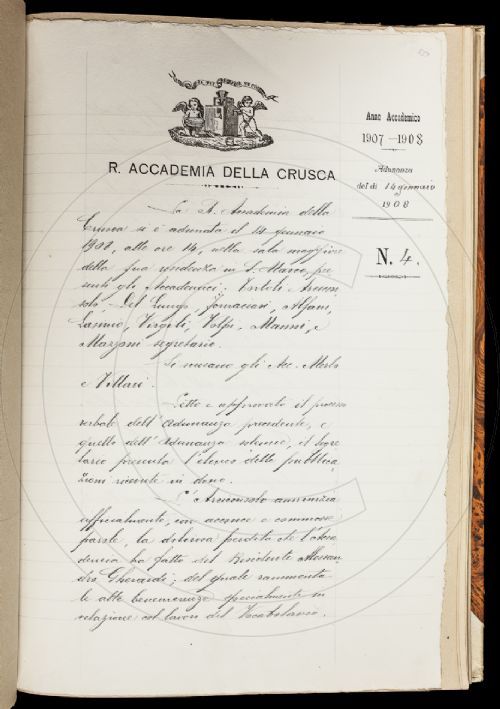 R. ACCADEMIA DELLA CRUSCA
Anno Accademico
1907-1908
Adunanza
del dì 14 gennaio
1908
N. 4.
La R. Accademia della
Crusca si è adunata il 14 gennaio
1908, alle ore 14, nella sala maggiore
della sua residenza in S. Marco, pre
senti gli Accademici: Tortoli Arcicon-
solo, Del Lungo, Tommasini, Alfani,
Lasinio, Virgili, Volpi, Manni, e
Mazzoni segretario.
Si scusano gli Acc. Merlo
e Villari.
Letto e approvato il processo
verbale dell'Adunanza precedente, e
quello dell'Adunanza solenne, il Segre
tario presenta l'elenco delle pubblica
zioni ricevute in dono.
L'Arciconsolo annunzia
ufficialmente, con acconce e commosse
parole, la dolorosa perdita che l'Acca
demia ha fatto del Residente Alessan
dro Gherardi; del quale rammenta
le alte benemerenze specialmente in
relazione coi lavori del Vocabolario.